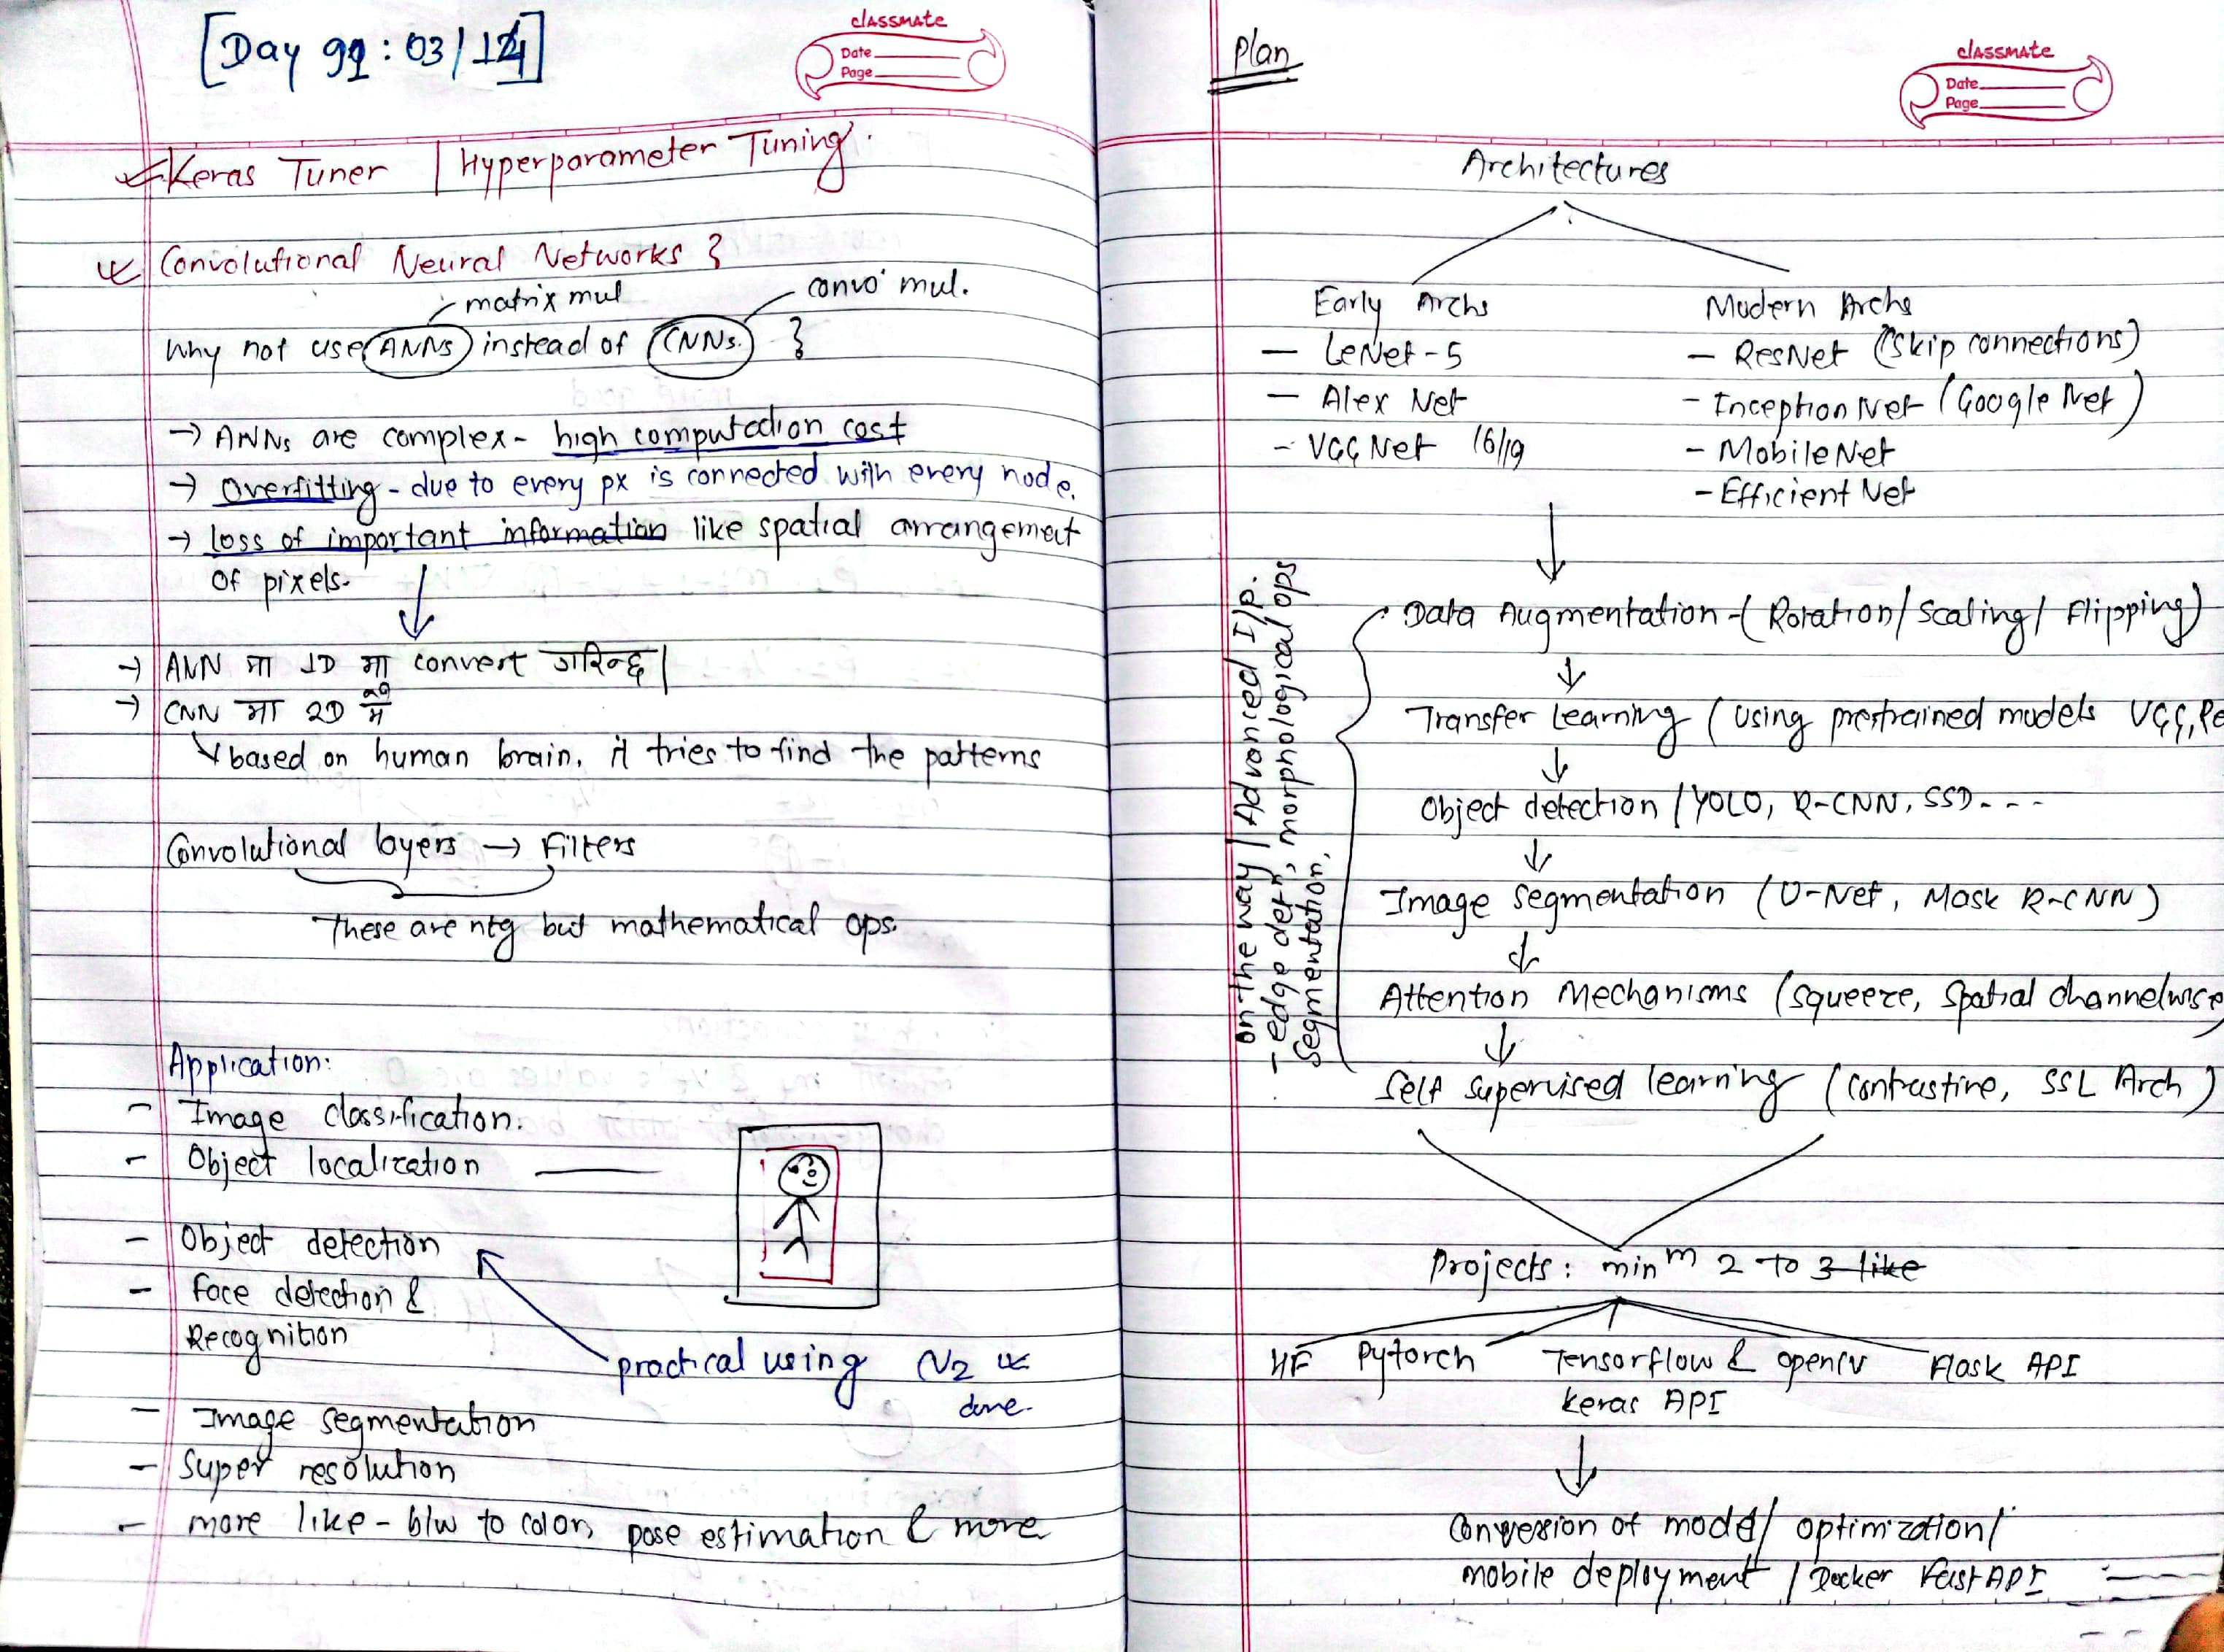 [Day 99 : 03/124]
classmate
Date
Page
Keras Tuner | Hyperparameter Tuning.
Convolutional Neural Networks }
matrix mul
convo' mul.
Why not use ANNs instead of CNNs. }
→ ANNs are complex - high computation cost
→ Overfitting - due to every px is connected with every node.
→ loss of important information like spatial arrangement
of pixels.
→ ANN मा 1D मा convert गरिन्छ |
→ CNN मा 2D मै
based on human brain, it tries to find the patterns
Convolutional layers → Filters
These are ntg but mathematical ops.
Application:
- Image classification.
- Object localization
- Object detection
- Face detection &
Recognition
practical using N2
done.
- Image segmentation
- Super resolution
- more like - b/w to color, pose estimation & more
Plan
classmate
Date
Page
Architectures
Early Archs
- LeNet-5
- Alex Net
- VGG Net 16/19
Modern Archs
- ResNet (skip connections)
- Inception Net (Google Net)
- MobileNet
- Efficient Net
on the way | Advanced I/P.
- edge detn, morphological ops
Segmentation.
Data Augmentation - (Rotation/ Scaling/ Flipping)
Transfer Learning (using pretrained models VGG, Re
Object detection / YOLO, R-CNN, SSD - - -
Image segmentation (U-Net, Mask R-CNN)
Attention Mechanisms (squeeze, Spatial channelwise
Self supervised learning (contrastive, SSL Arch)
Projects: minm 2 to 3 like
HF Pytorch Tensorflow & openCV Flask API
keras API
Conversion of model/ optimization/
mobile deployment / Docker FastAPI